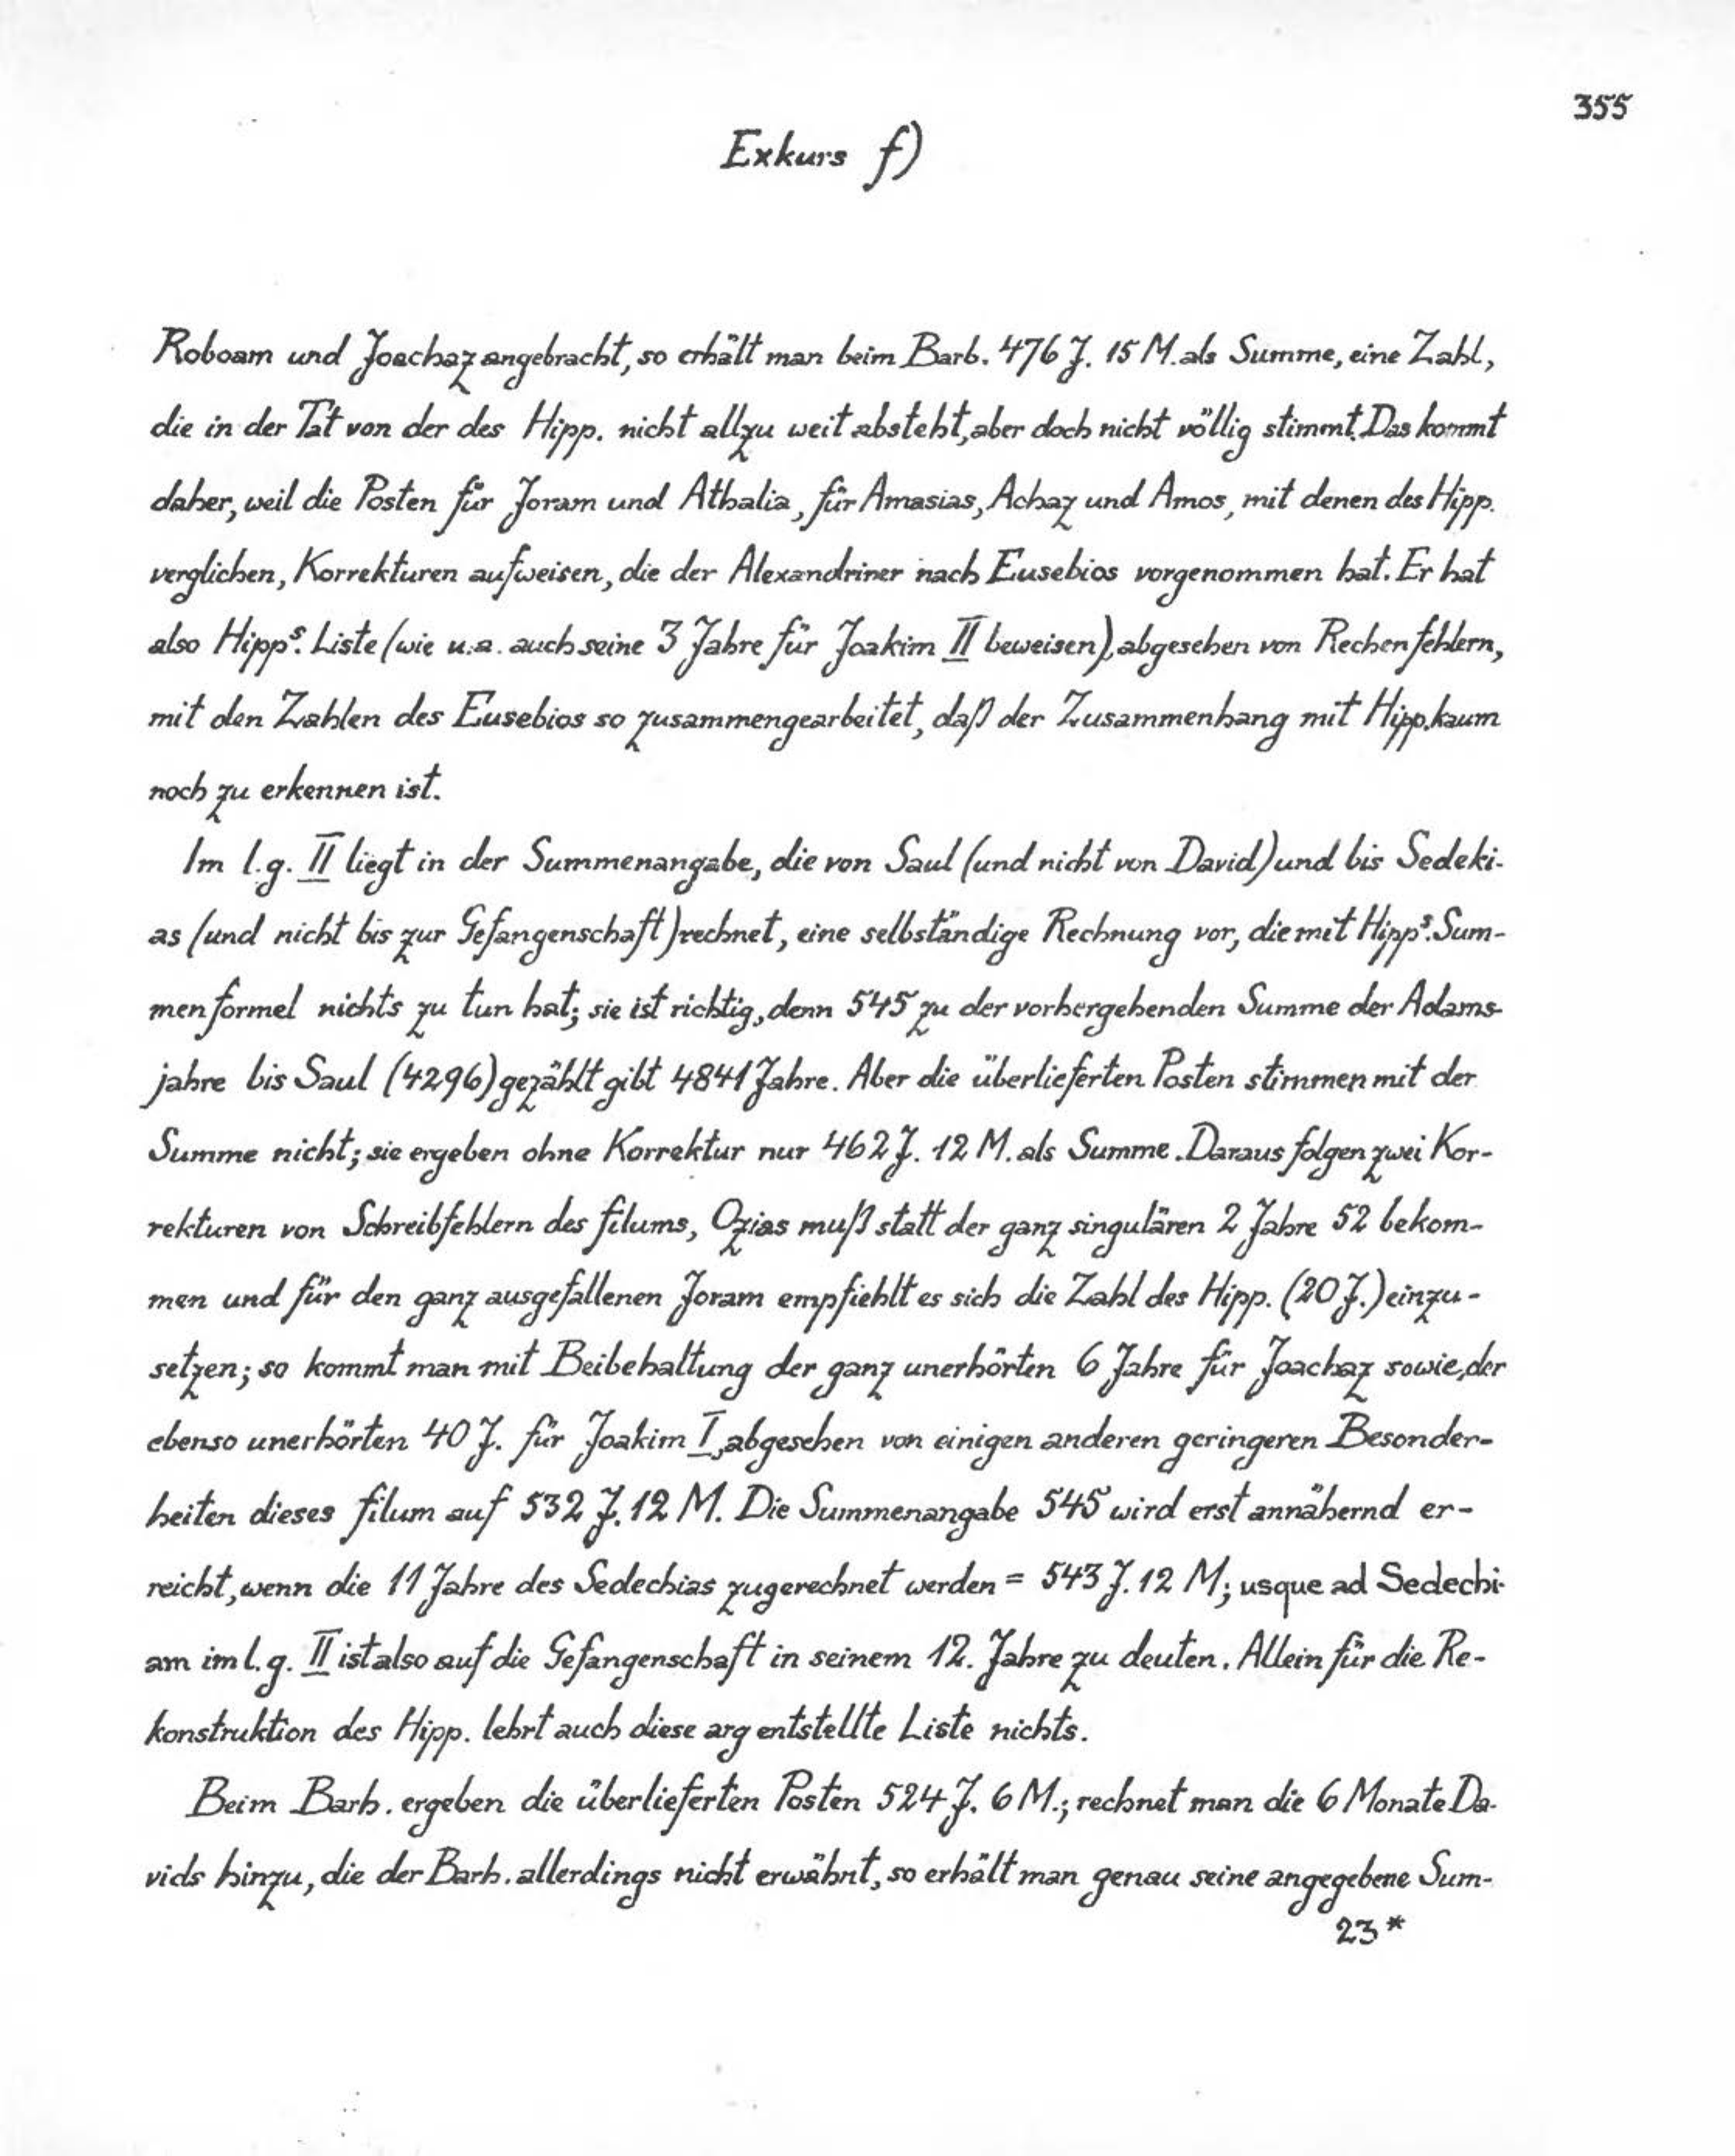 355
Exkurs f)
Roboam und Joachaz angebracht, so erhält man beim Barb. 476 J. 15 M. als Summe, eine Zahl,
die in der Tat von der des Hipp. nicht allzu weit absteht, aber doch nicht völlig stimmt. Das kommt
daher, weil die Posten für Joram und Athalia, für Amasias, Achaz und Amos, mit denen des Hipp.
verglichen, Korrekturen aufweisen, die der Alexandriner nach Eusebios vorgenommen hat. Er hat
also Hipp.s Liste (wie u.a. auch seine 3 Jahre für Joakim II beweisen), abgesehen von Rechenfehlern,
mit den Zahlen des Eusebios so zusammengearbeitet, daß der Zusammenhang mit Hipp. kaum
noch zu erkennen ist.
Im l.g. II liegt in der Summenangabe, die von Saul (und nicht von David) und bis Sedeki-
as (und nicht bis zur Gefangenschaft) rechnet, eine selbständige Rechnung vor, die mit Hipp.s Sum-
menformel nichts zu tun hat; sie ist richtig, denn 545 zu der vorhergehenden Summe der Adams-
jahre bis Saul (4296) gezählt gibt 4841 Jahre. Aber die überlieferten Posten stimmen mit der
Summe nicht; sie ergeben ohne Korrektur nur 462 J. 12 M. als Summe. Daraus folgen zwei Kor-
rekturen von Schreibfehlern des filums, Ozias muß statt der ganz singulären 2 Jahre 52 bekom-
men und für den ganz ausgefallenen Joram empfiehlt es sich die Zahl des Hipp. (20 J.) einzu-
setzen; so kommt man mit Beibehaltung der ganz unerhörten 6 Jahre für Joachaz sowie, der
ebenso unerhörten 40 J. für Joakim I, abgesehen von einigen anderen geringeren Besonder-
heiten dieses filum auf 532 J. 12 M. Die Summenangabe 545 wird erst annähernd er-
reicht, wenn die 11 Jahre des Sedechias zugerechnet werden = 543 J. 12 M; usque ad Sedechi-
am im l.g. II ist also auf die Gefangenschaft in seinem 12. Jahre zu deuten. Allein für die Re-
konstruktion des Hipp. lehrt auch diese arg entstellte Liste nichts.
Beim Barb. ergeben die überlieferten Posten 524 J. 6 M.; rechnet man die 6 Monate Da-
vids hinzu, die der Barb. allerdings nicht erwähnt, so erhält man genau seine angegebene Sum-
23*